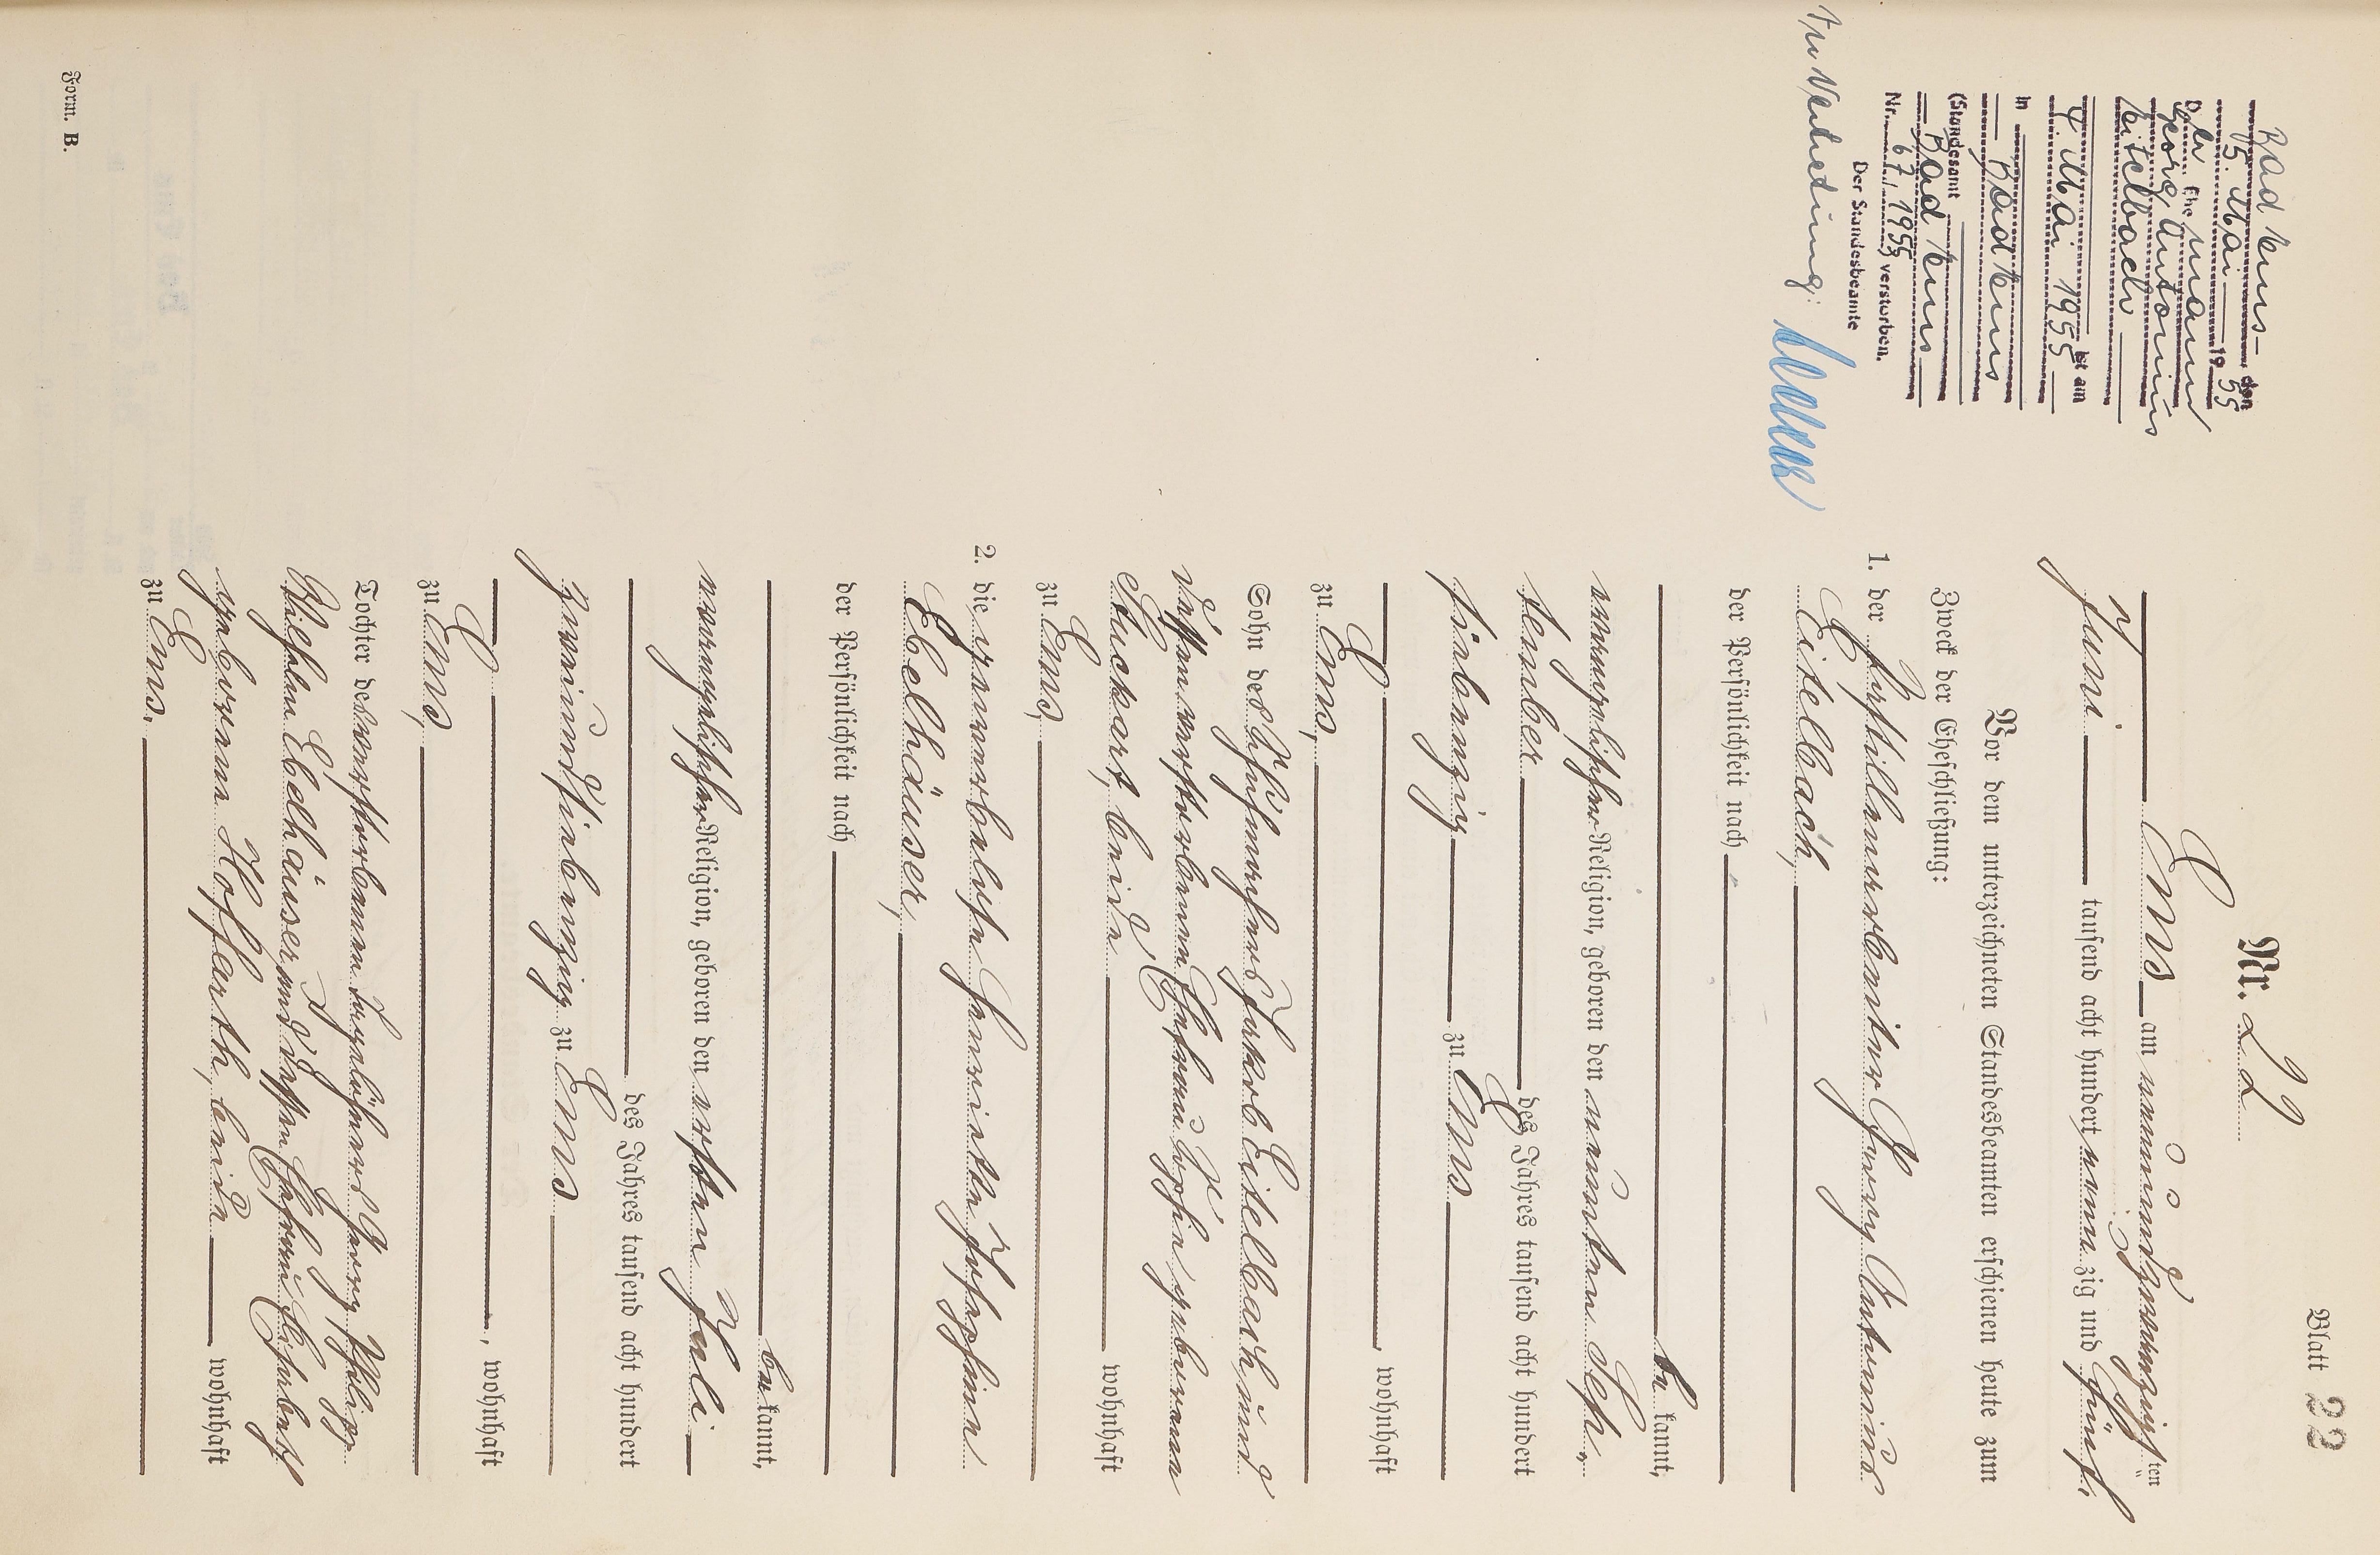 Blatt 22
Nr. 22
Ems am neunundzwanzigsten
Juni tausend acht hundert neunzig und fünf,
Vor dem unterzeichneten Standesbeamten erschienen heute zum
Zweck der Eheschließung:
1. der Georg Antonius
Eitelbach,
der Persönlichkeit nach
bekannt,
evangelischer Religion, geboren den neunten Sep-
tember des Jahres tausend acht hundert
siebenzig zu Ems
wohnhaft
zu Ems,
Sohn des Jakob Eitelbach und
dessen verstorbenen Ehefrau Sophie geborenen
Stuckart, beide wohnhaft
zu Ems,
2. die gewerblose Henriette Josephine
Ebelhäuser,
der Persönlichkeit nach
bekannt,
evangelischer Religion, geboren den ersten Juli
des Jahres tausend acht hundert
zweiundsiebenzig zu Ems
, wohnhaft
zu Ems,
Tochter des verstorbenen Tagelöhners Georg Philipp
Wilhelm Ebelhäuser und dessen Ehefrau Elisabeth
geborenen Hoffarth, beide wohnhaft
zu Ems.
Bad Ems den
5. Mai 1955
Der Ehemann
Georg Antonius
Eitelbach
ist am
4. Mai 1955
in Bad Ems
(Standesamt
Bad Ems
Nr. 67/1955) verstorben.
Der Standesbeamte
In Vertretung:
Form. B.